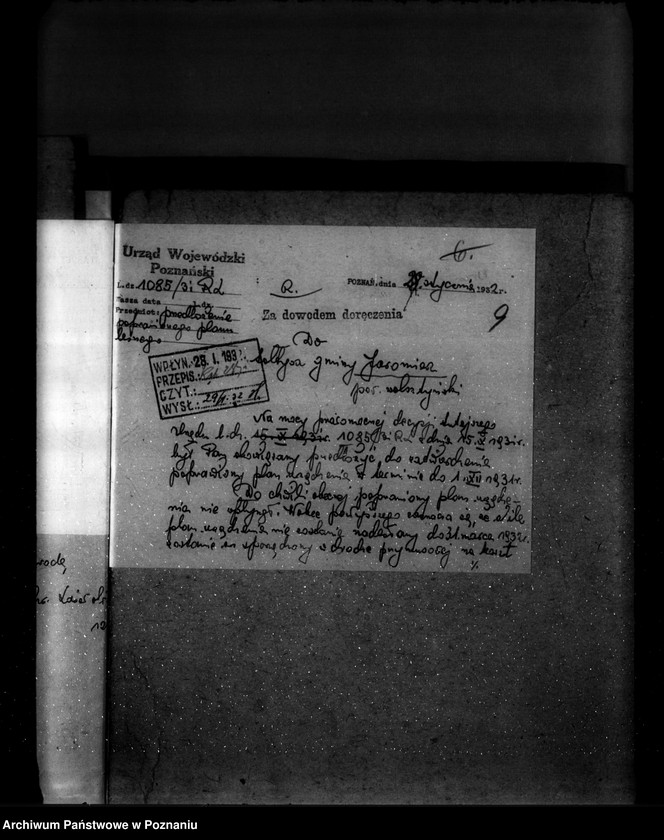 6.
Urząd Wojewódzki
Poznański
L. dz. 1085/31 Rd
R.
POZNAŃ, dnia 28 stycznia 1932 r.
Wasza data L. dz.
Przedmiot: przedłożenie
poprawionego planu
leśnego
Za dowodem doręczenia
9
Do
sołtysa gminy Jaromierz
pow. wolsztyński
WPŁYN. 28. I. 1932
PRZEPIS.
CZYT.:
WYSŁ.: 29/I. 32
Na mocy prawomocnej decyzji tutejszego
Urzędu L. dz. 1085/31 Rd z dnia 15. X 1931 r.
był Pan obowiązany przedłożyć do zatwierdzenia
poprawiony plan urządzenia w terminie do 1. XII 1931 r.
Do chwili obecnej poprawiony plan urządze-
nia nie wpłynął. Wobec powyższego oznacza się, że o ile
plan urządzenia nie zostanie nadesłany do 31 marca 1932 r.
zostanie on sporządzony w drodze przymusowej na koszt
%
rodę,
12
Archiwum Państwowe w Poznaniu